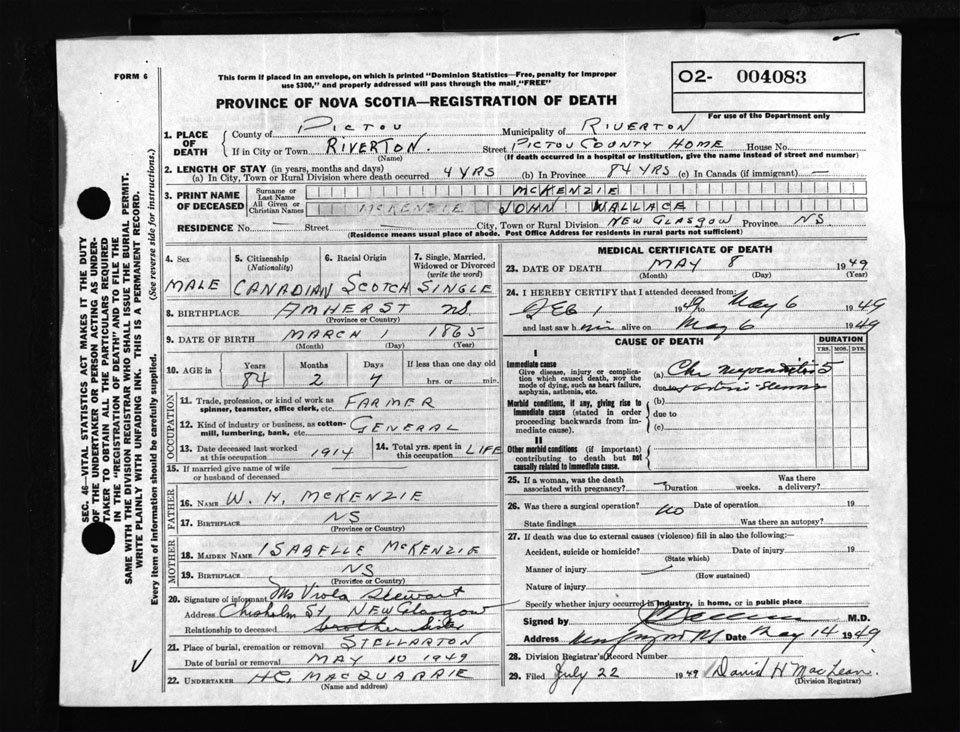 FORM 6
This form if placed in an envelope, on which is printed "Dominion Statistics—Free, penalty for improper
use $300," and properly addressed will pass through the mail "FREE"
O2- 004083
For use of the Department only
PROVINCE OF NOVA SCOTIA—REGISTRATION OF DEATH
1. PLACE OF DEATH
County of PICTOU Municipality of RIVERTON
If in City or Town RIVERTON. Street PICTOU COUNTY HOME House No.
(Name) (If death occurred in a hospital or institution, give the name instead of street and number)
2. LENGTH OF STAY (in years, months and days)
(a) In City, Town or Rural Division where death occurred 4 YRS (b) In Province 84 YRS (c) In Canada (if immigrant) —
3. PRINT NAME OF DECEASED
Surname or Last Name MCKENZIE
All Given or Christian Names MCKENZIE JOHN WALLACE
RESIDENCE No. — Street City, Town or Rural Division NEW GLASGOW Province NS
(Residence means usual place of abode. Post Office Address for residents in rural parts not sufficient)
4. Sex
MALE
5. Citizenship (Nationality)
CANADIAN
6. Racial Origin
SCOTCH
7. Single, Married, Widowed or Divorced (write the word)
SINGLE
8. BIRTHPLACE AMHERST NS.
(Province or Country)
9. DATE OF BIRTH MARCH 1865
(Month) (Day) (Year)
10. AGE in
Years Months Days If less than one day old
84 2 4 hrs. or min.
OCCUPATION
11. Trade, profession, or kind of work as spinner, teamster, office clerk, etc. FARMER
12. Kind of industry or business, as cotton-mill, lumbering, bank, etc. GENERAL
13. Date deceased last worked at this occupation 1914
14. Total yrs. spent in this occupation LIFE
15. If married give name of wife or husband of deceased
FATHER
16. NAME W. H. MCKENZIE
17. BIRTHPLACE NS
(Province or Country)
MOTHER
18. MAIDEN NAME ISABELLE MCKENZIE
19. BIRTHPLACE NS
(Province or Country)
20. Signature of informant Ms Viola Stewart
Address Chisholm St NEW Glasgow
Relationship to deceased brother Sister
21. Place of burial, cremation or removal STELLARTON
Date of burial or removal MAY 10 1949
22. UNDERTAKER H.C. MACQUARRIE
(Name and address)
MEDICAL CERTIFICATE OF DEATH
23. DATE OF DEATH MAY 8 1949
(Month) (Day) (Year)
24. I HEREBY CERTIFY that I attended deceased from:
FEB 1 1949 to May 6 1949
and last saw him alive on May 6 1949
CAUSE OF DEATH
DURATION
YRS. MOS. DYS.
I
Immediate cause
Give disease, injury or complication which caused death, NOT the mode of dying, such as heart failure, asphyxia, asthenia, etc.
(a) Chr 5
due to
Morbid conditions, if any, giving rise to immediate cause (stated in order proceeding backwards from immediate cause).
(b)
due to
(c)
II
Other morbid conditions (if important) contributing to death but not causally related to immediate cause.
25. If a woman, was the death associated with pregnancy? Duration weeks. Was there a delivery?
26. Was there a surgical operation? no Date of operation 19
State findings Was there an autopsy?
27. If death was due to external causes (violence) fill in also the following:—
Accident, suicide or homicide? Date of injury 19
(State which)
Manner of injury
(How sustained)
Nature of injury
Specify whether injury occurred in industry, in home, or in public place
Signed by M.D.
Address Date May 14 1949
28. Division Registrar's Record Number
29. Filed July 22 1949 David H MacLean.
(Division Registrar)
SEC. 46—VITAL STATISTICS ACT MAKES IT THE DUTY
OF THE UNDERTAKER OR PERSON ACTING AS UNDER-
TAKER TO OBTAIN ALL THE PARTICULARS REQUIRED
IN THE "REGISTRATION OF DEATH" AND TO FILE THE
SAME WITH THE DIVISION REGISTRAR WHO SHALL ISSUE THE BURIAL PERMIT.
WRITE PLAINLY WITH UNFADING INK. THIS IS A PERMANENT RECORD.
Every item of information should be carefully supplied. (See reverse side for instructions.)